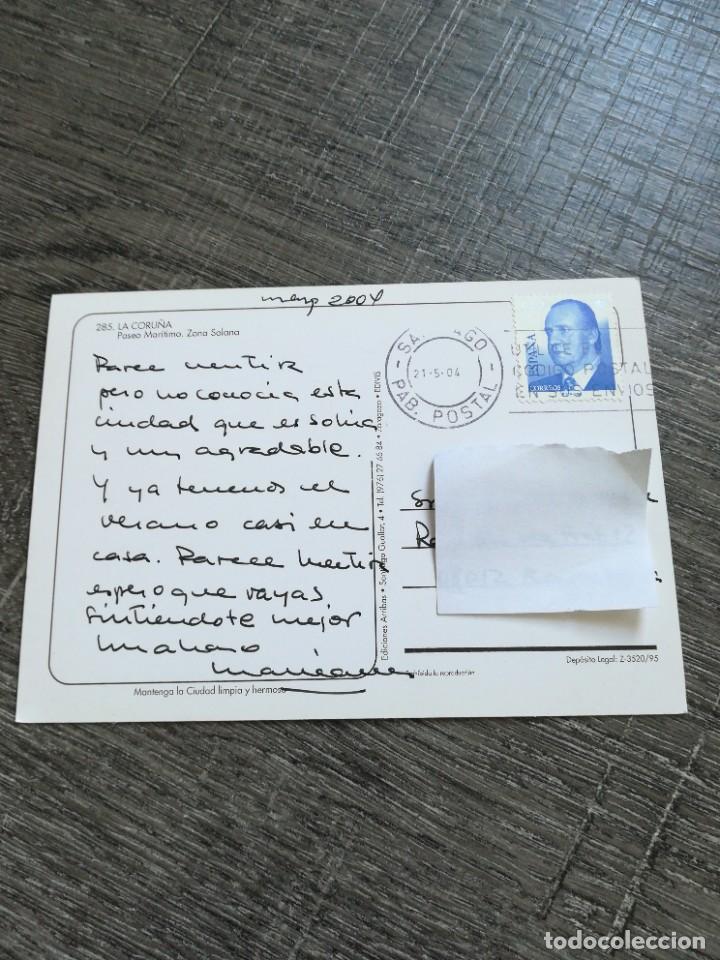 mayo 2004
285. LA CORUÑA
Paseo Marítimo. Zona Solana
Parece mentira
pero no conocía esta
ciudad que es soleada
y muy agradable.
Y ya tenemos el
verano casi en
casa. Parece mentira
espero que vayas
sintiéndote mejor
Un abrazo
Mantenga la Ciudad limpia y hermosa
Ediciones Arribas • Santiago Guallar, 4 • Tel. (976) 27 65 84 • Zaragoza • EDIVIS
SANTIAGO
21-5-04
PAB. POSTAL
ESPAÑA
CORREOS
CÓDIGO POSTAL
EN SUS ENVIOS
Prohibida su reproducción
Depósito Legal: Z-3520/95
todocoleccion
todocoleccion.net